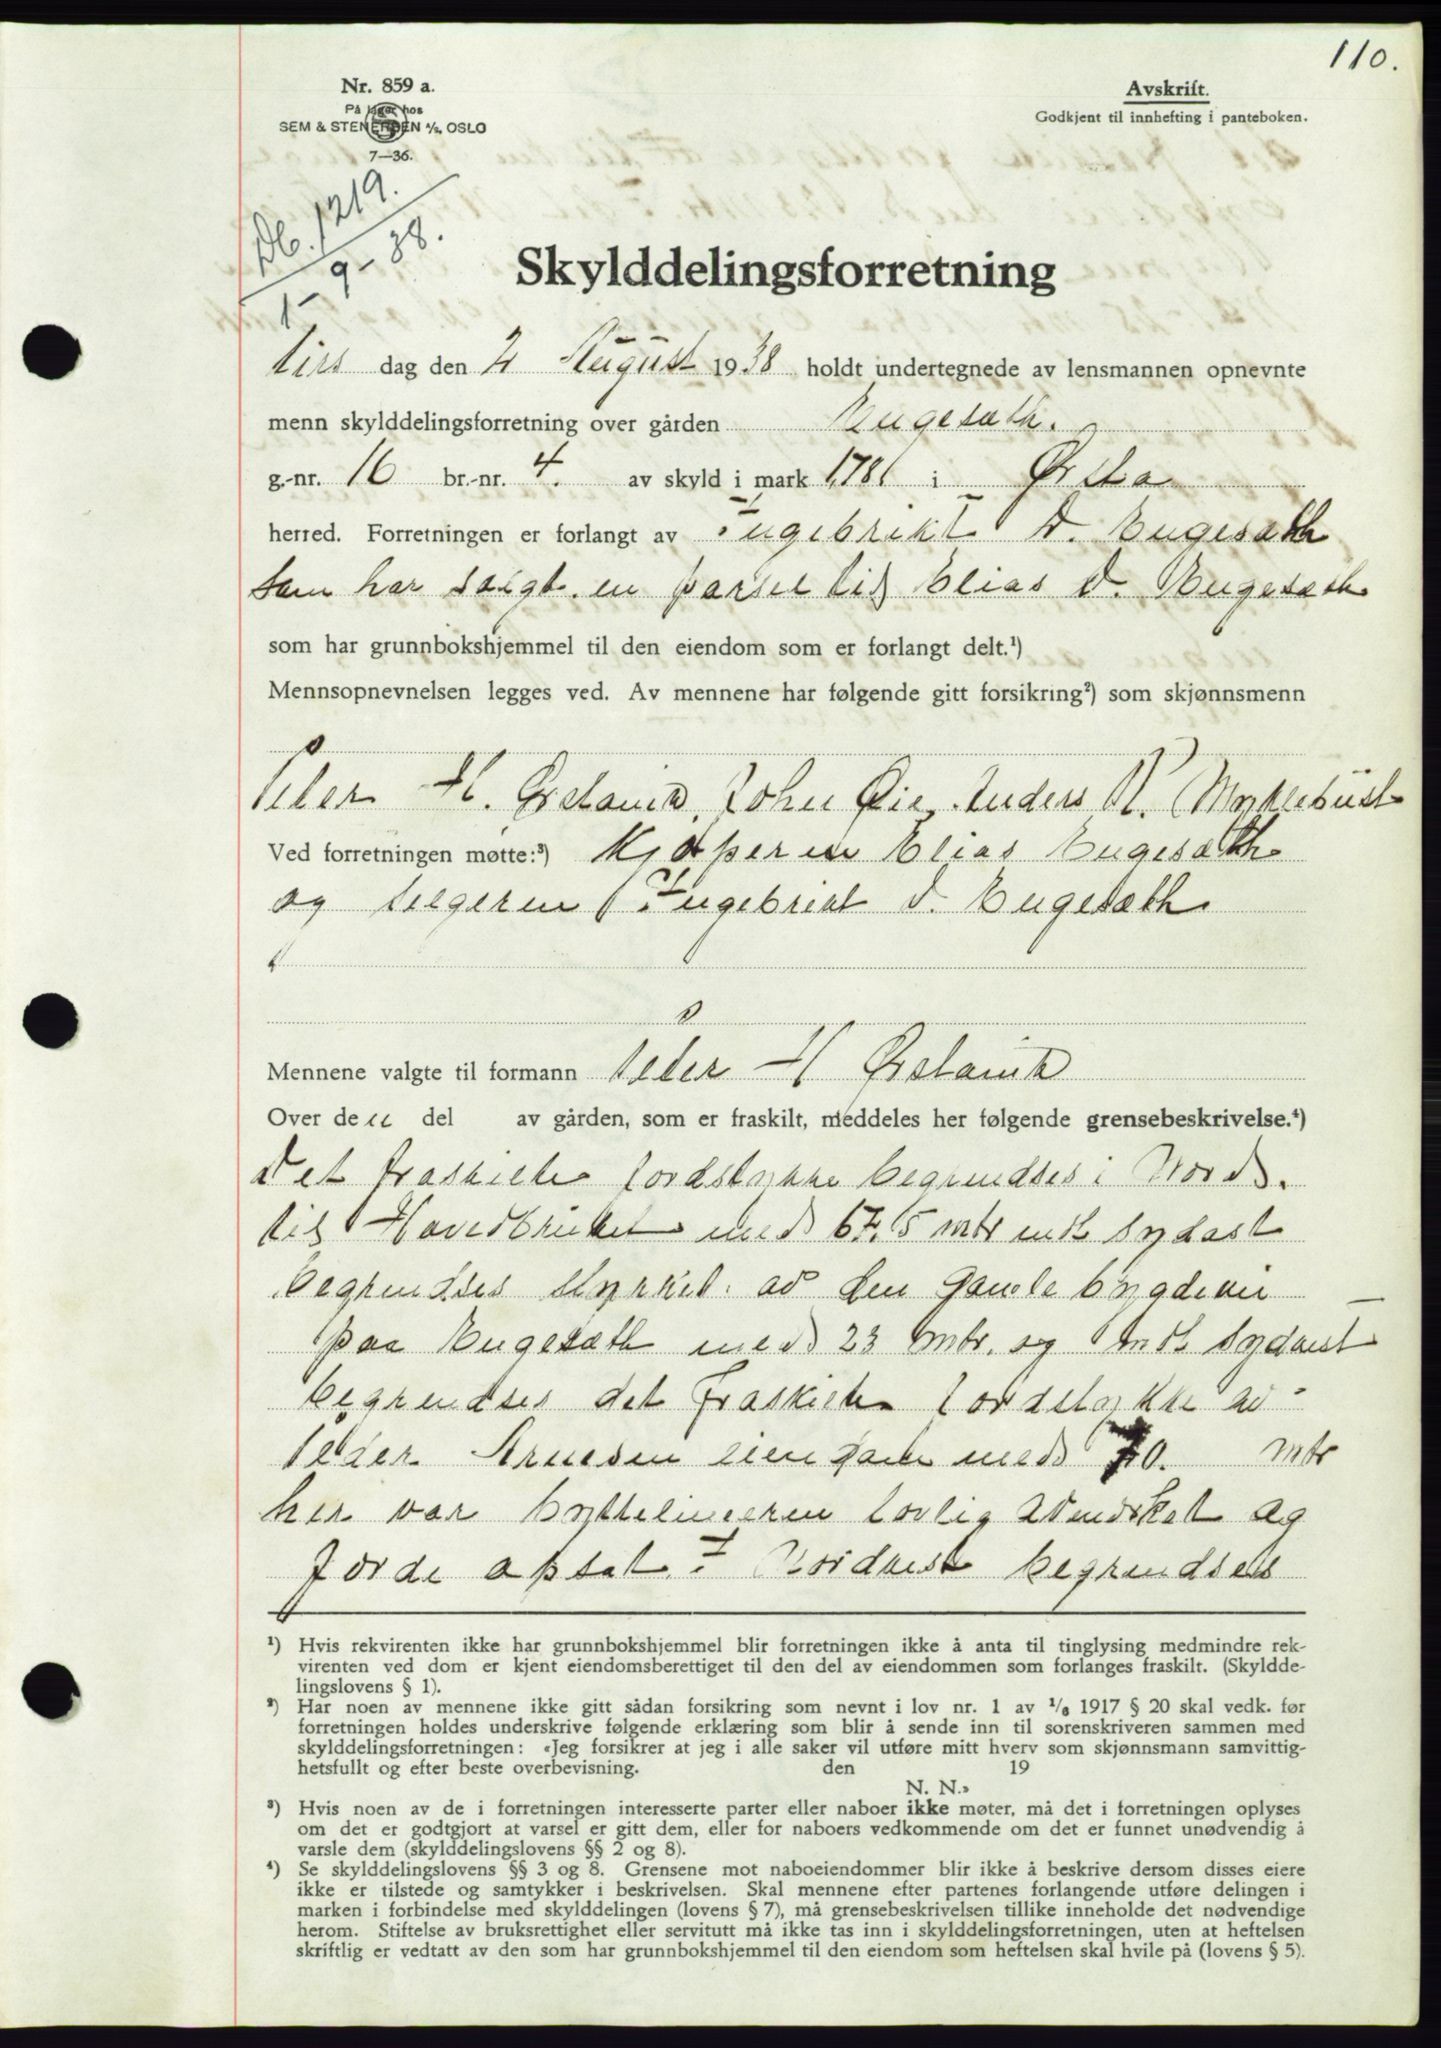 110.
Nr. 859 a.
På lager hos
SEM & STENERSEN A/S, OSLO
7—36.
Avskrift.
Godkjent til innhefting i panteboken.
Db. 1219.
1-9-38.
Skylddelingsforretning
tirs dag den 2 August 1938 holdt undertegnede av lensmannen opnevnte
menn skylddelingsforretning over gården Engesæth.
g.-nr. 16 br.-nr. 4. av skyld i mark 1,78 i Ørsta
herred. Forretningen er forlangt av Ingebrikt D. Engesæth
som har solgt en parsel til Elias D. Engesæth
som har grunnbokshjemmel til den eiendom som er forlangt delt.¹)
Mennsopnevnelsen legges ved. Av mennene har følgende gitt forsikring²) som skjønnsmenn
Peter H. Ørstavik, John Øie, Anders N. Myklebust
Ved forretningen møtte:³) Kjøperen Elias Engesæth
og selgeren Ingebrikt D. Engesæth
Mennene valgte til formann Peter H Ørstavik
Over den del av gården, som er fraskilt, meddeles her følgende grensebeskrivelse.⁴)
Det fraskilte jordstykke begrendses i Nord
til Hovedbruket med 67,5 mtr mot sydost
begrendses stykket av den gamle bygdevei
paa Engesæth med 23 mtr. og mot sydvest
begrendses det fraskilte jordstykke av
Peder Arnesen eiendom med 70. mtr
her var byttelinjeren lovlig og
jorde opsat. I Nordvest begrendses
¹) Hvis rekvirenten ikke har grunnbokshjemmel blir forretningen ikke å anta til tinglysing medmindre rek-
virenten ved dom er kjent eiendomsberettiget til den del av eiendommen som forlanges fraskilt. (Skyldde-
lingslovens § 1).
²) Har noen av mennene ikke gitt sådan forsikring som nevnt i lov nr. 1 av ¹/₆ 1917 § 20 skal vedk. før
forretningen holdes underskrive følgende erklæring som blir å sende inn til sorenskriveren sammen med
skylddelingsforretningen: «Jeg forsikrer at jeg i alle saker vil utføre mitt hverv som skjønnsmann samvittig-
hetsfullt og efter beste overbevisning. den 19
N. N.»
³) Hvis noen av de i forretningen interesserte parter eller naboer ikke møter, må det i forretningen oplyses
om det er godtgjort at varsel er gitt dem, eller for naboers vedkommende om det er funnet unødvendig å
varsle dem (skylddelingslovens §§ 2 og 8).
⁴) Se skylddelingslovens §§ 3 og 8. Grensene mot naboeiendommer blir ikke å beskrive dersom disses eiere
ikke er tilstede og samtykker i beskrivelsen. Skal mennene efter partenes forlangende utføre delingen i
marken i forbindelse med skylddelingen (lovens § 7), må grensebeskrivelsen tillike inneholde det nødvendige
herom. Stiftelse av bruksrettighet eller servitutt må ikke tas inn i skylddelingsforretningen, uten at heftelsen
skriftlig er vedtatt av den som har grunnbokshjemmel til den eiendom som heftelsen skal hvile på (lovens § 5).